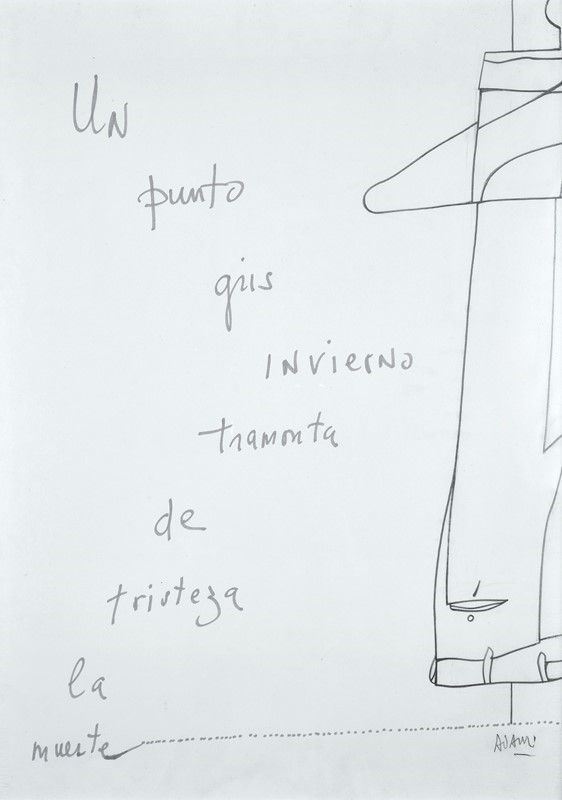 UN
punto
gris
INVIERNO
tramonta
de
tristeza
la
muerte
ADAMI